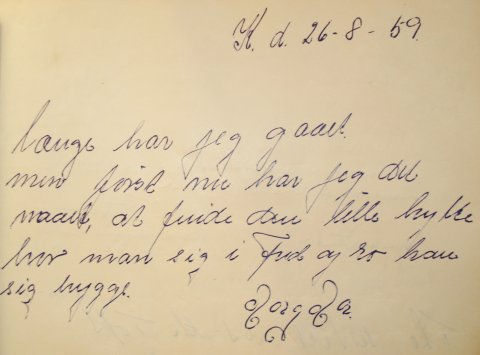 K. d. 26-8-59.
længe har jeg gaaet.
men først nu har jeg det
naaet, at finde den lille hytte
hvor man sig i Fred og ro kan
sig hygge.